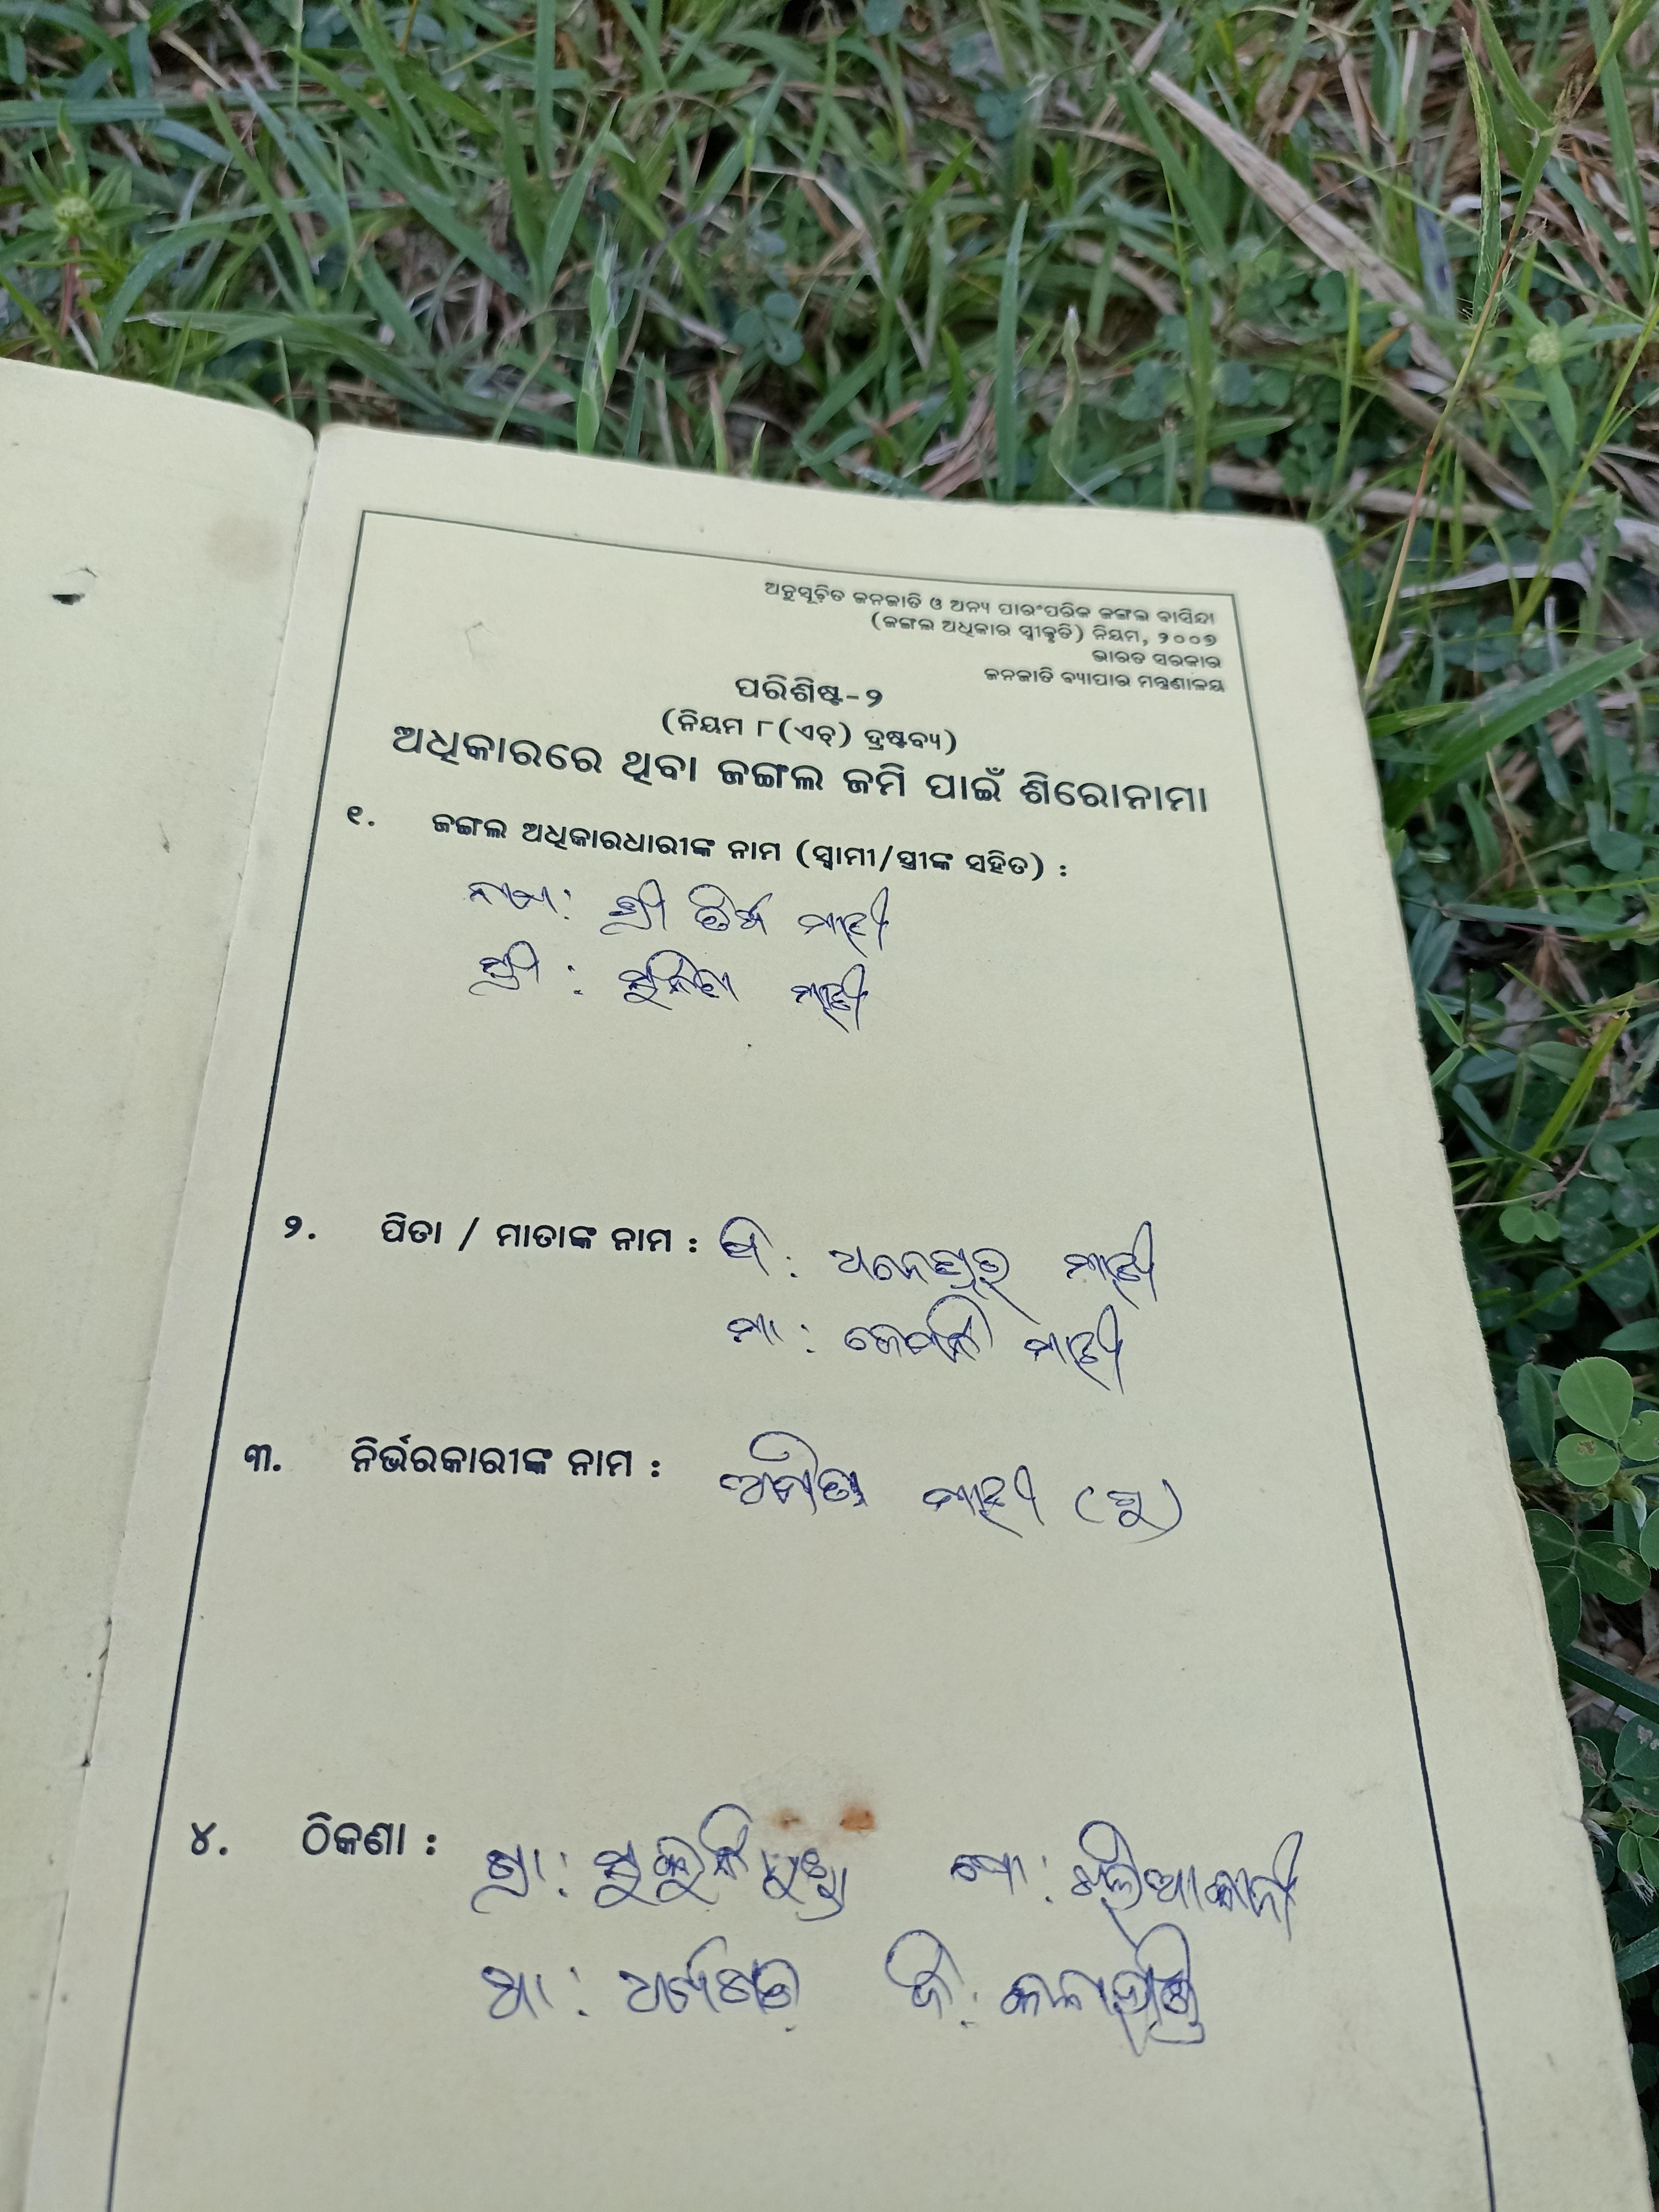 ଅନୁସୂଚିତ ଜନଜାତି ଓ ଅନ୍ୟ ପାରଂପରିକ ଜଙ୍ଗଲ ବାସିନ୍ଦା
(ଜଙ୍ଗଲ ଅଧିକାର ସ୍ୱୀକୃତି) ନିୟମ, ୨୦୦୭
ଭାରତ ସରକାର
ଜନଜାତି ବ୍ୟାପାର ମନ୍ତ୍ରଣାଳୟ
ପରିଶିଷ୍ଟ-୨
(ନିୟମ ୮(ଏଚ୍) ଦ୍ରଷ୍ଟବ୍ୟ)
ଅଧିକାରରେ ଥିବା ଜଙ୍ଗଲ ଜମି ପାଇଁ ଶିରୋନାମା
୧. ଜଙ୍ଗଲ ଅଧିକାରଧାରୀଙ୍କ ନାମ (ସ୍ୱାମୀ/ସ୍ତ୍ରୀଙ୍କ ସହିତ) :
ନାମ: ଶ୍ରୀ ମାଝୀ
ସ୍ତ୍ରୀ : ମାଝୀ
୨. ପିତା / ମାତାଙ୍କ ନାମ : ପି: ମାଝୀ
ମା: ମାଝୀ
୩. ନିର୍ଭରକାରୀଙ୍କ ନାମ : ମାଝୀ (ପୁ)
୪. ଠିକଣା : ଗ୍ରା: ପୋ:
ଥା: ଧର୍ମଗଡ ଜି: କଳାହାଣ୍ଡି